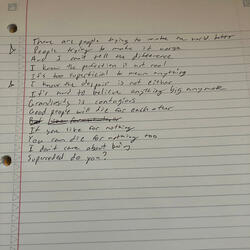 There are people trying to make the world better
People trying to make it worse
And I can't tell the difference
I know the perfection is not real
It's too superficial to mean anything
I know the despair is not either
It's hard to believe anything big anymore
Grandiosity is contagious
Good people will die for each other
If you like for nothing
You can die for nothing too
I don't care about being
Superseded do you?